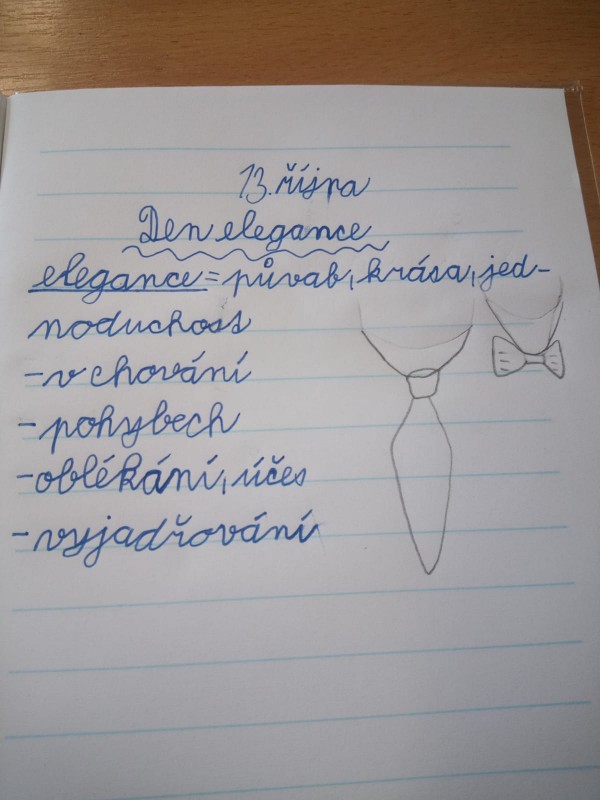 13. října
Den elegance
elegance = půvab, krása, jed-
noduchost
- v chování
- pohybech
- oblékání, účes
- vyjadřování